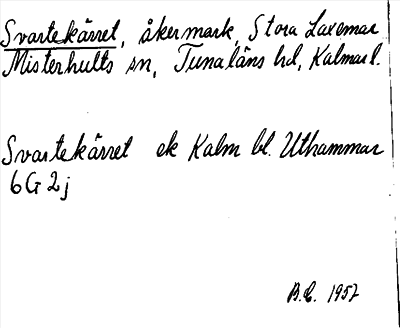 Svartekärret, åkermark, Stora Laxemar
Misterhults sn, Tunaläns hd, Kalmar l.
Svartekärret ek Kalm bl. Uthammar
6G2j
B.E. 1957